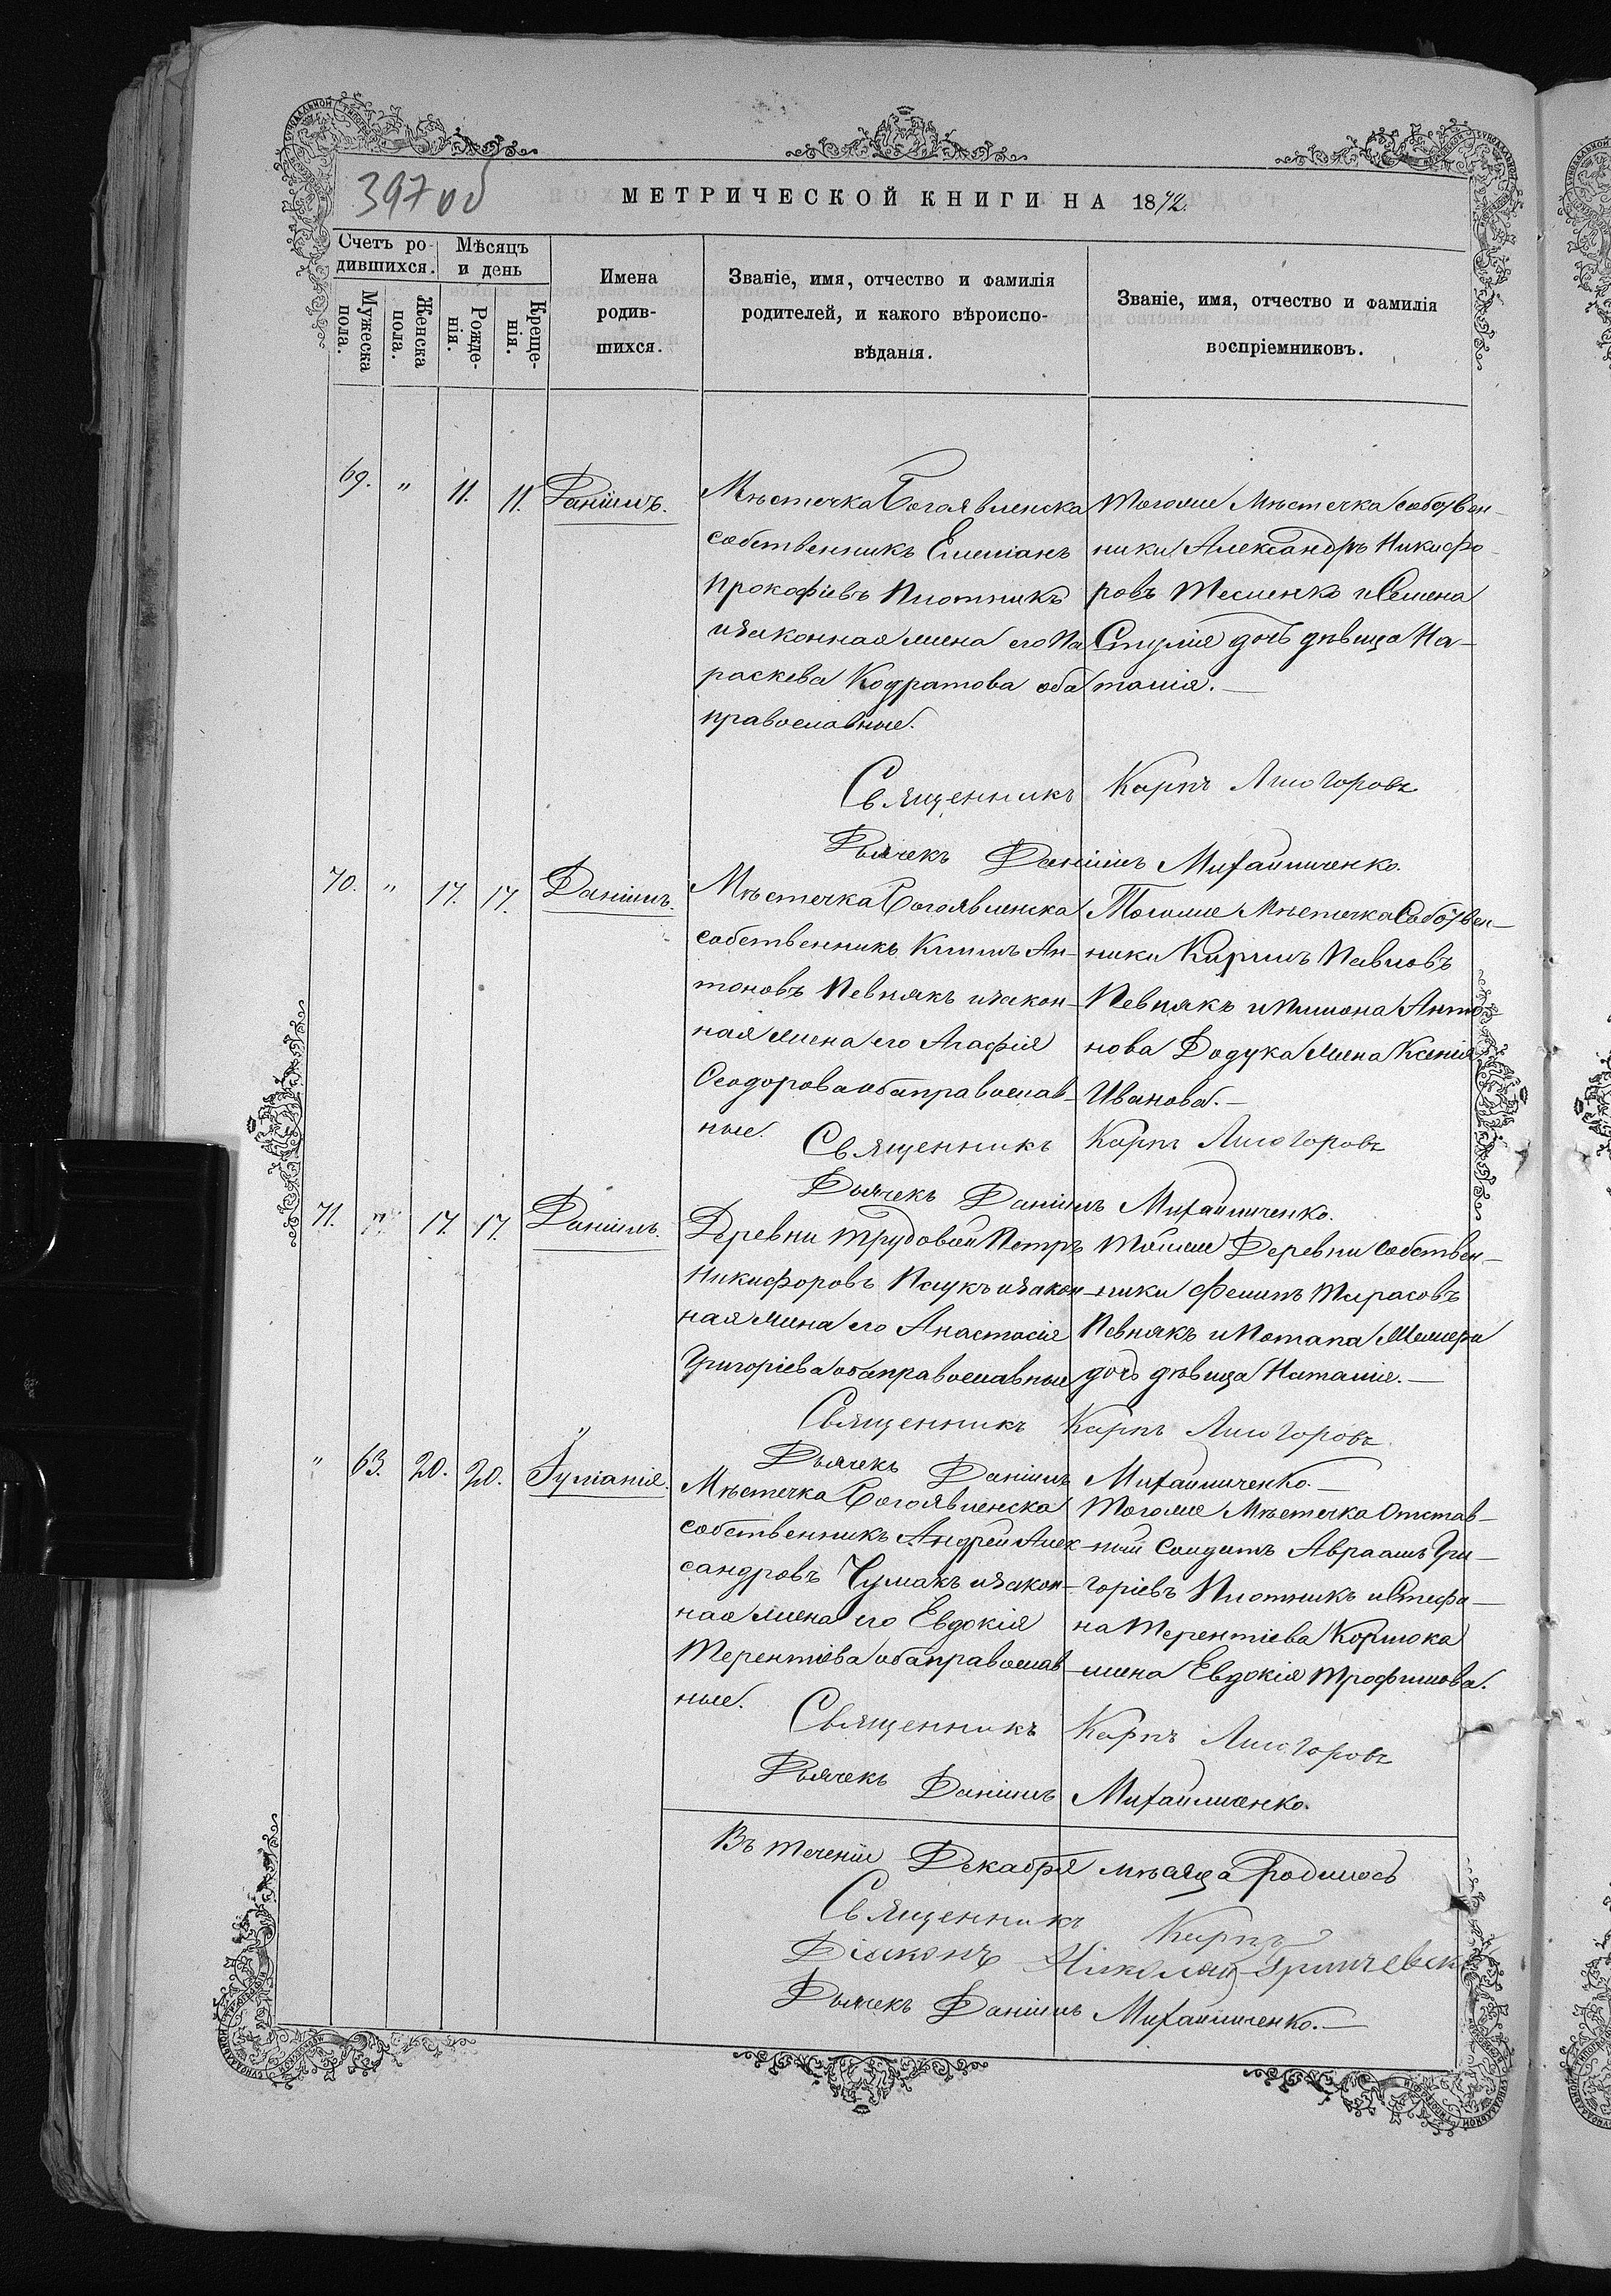 397 об
МЕТРИЧЕСКОЙ КНИГИ НА 1872.
Счетъ ро-
дившихся.
Мѣсяцъ
и день
Мужеска пола.
Женска пола.
Рожде-нія.
Креще-нія.
Имена
родив-
шихся.
Званіе, имя, отчество и фамилія
родителей, и какого вѣроиспо-
вѣданія.
Званіе, имя, отчество и фамилія
воспріемниковъ.
69. " 11. 11. Даніилъ.
Мѣстечка Богоявленска
собственникъ Емеліанъ
Прокофіевъ Плотникъ
и законная жена его Па
раскева Кодратова оба
православные.
Тогоже Мѣстечка собствен-
ники Александръ Никифо-
ровъ Тесленко и Семена
дочь дѣвица На-
талія.—
Священникъ Карпъ Лисогоровъ
Дьячекъ Даніилъ Михайличенко.
70. " 17. 17. Даніилъ.
Мѣстечка Богоявленска
собственникъ Климъ Ан-
тоновъ Певнякъ и закон-
ная жена его Агафія
Ѳеодорова оба православ-
ные.
Тогоже Мѣстечка Собствен-
ники Кирилъ Павловъ
Певнякъ и Антo-
нова Дадука жена Ксенія
Иванова.—
Священникъ Карпъ Лисогоровъ
Дьячекъ Даніилъ Михайличенко.
71. " 17. 17. Даніилъ.
Деревни Трудовой Петръ
Никифоровъ Паукъ и закон-
ная жена его Анастасія
Григоріева оба православные
Тойже Деревни собствен-
ники Филипъ Тарасовъ
Певнякъ и Потапа
дочь дѣвица Наталія.—
Священникъ Карпъ Лисогоровъ
Дьячекъ Даніилъ Михайличенко.—
" 63. 20. 20. Іуліанія.
Мѣстечка Богоявленска
собственникъ Андрей Алек-
сандровъ Чумакъ и закон-
ная жена его Евдокія
Терентіева оба православ-
ные.
Тогоже Мѣстечка Отстав-
ный Солдатъ Авраамъ Гри-
горіевъ Плотникъ и Стефа-
на Терентіева Коржока
жена Евдокія Трофимова.
Священникъ Карпъ Лисогоровъ
Дьячекъ Даніилъ Михайличенко.
Въ теченіи Декабря мѣсяца родилось
Священникъ Карпъ
Діаконъ Николай
Дьячекъ Даніилъ Михайличенко.—